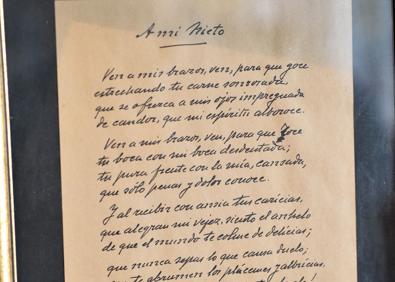 A mi Nieto
Ven a mis brazos, ven, para que goce
estrechando tu carne sonrosada,
que se ofrezca a mis ojos impregnada
de candor, que mi espíritu alboroce.
Ven a mis brazos, ven, para que roce
tu boca con mi boca desdentada;
tu pura frente con la mía, cansada,
que sólo penas y dolor conoce.
Y al recibir con ansia tus caricias,
que alegran mi vejez, siento el anhelo
de que el mundo te colme de delicias;
que nunca sepas lo que causa duelo;
te abrumen los plácemes y albricias,